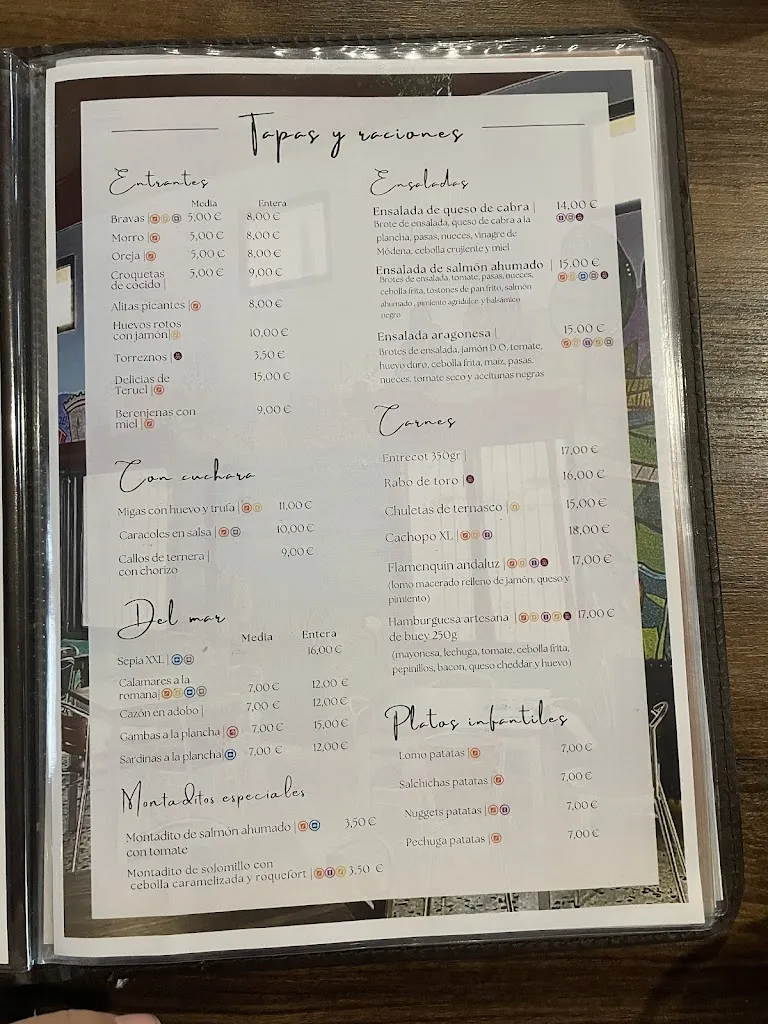 Tapas y raciones
Entrantes
Media Entera
Bravas | 5,00 € 8,00 €
Morro | 5,00 € 8,00 €
Oreja | 5,00 € 8,00 €
Croquetas 5,00 € 9,00 €
de cocido |
Alitas picantes | 8,00 €
Huevos rotos
con jamón | 10,00 €
Torreznos | 3,50 €
Delicias de 15,00 €
Teruel |
Berenjenas con 9,00 €
miel |
Con cuchara
Migas con huevo y trufa | 11,00 €
Caracoles en salsa | 10,00 €
Callos de ternera | 9,00 €
con chorizo
Del mar
Media Entera
Sepia XXL | 16,00 €
Calamares a la
romana | 7,00 € 12,00 €
Cazón en adobo | 7,00 € 12,00 €
Gambas a la plancha | 7,00 € 15,00 €
Sardinas a la plancha | 7,00 € 12,00 €
Montaditos especiales
Montadito de salmón ahumado | 3,50 €
con tomate
Montadito de solomillo con
cebolla caramelizada y roquefort | 3,50 €
Ensaladas
Ensalada de queso de cabra | 14,00 €
Brote de ensalada, queso de cabra a la
plancha, pasas, nueces, vinagre de
Módena, cebolla crujiente y miel
Ensalada de salmón ahumado | 15,00 €
Brotes de ensalada, tomate, pasas, nueces,
cebolla frita, tostones de pan frito, salmón
ahumado , pimiento agridulce y balsámico
negro
Ensalada aragonesa | 15,00 €
Brotes de ensalada, jamón D.O, tomate,
huevo duro, cebolla frita, maíz, pasas,
nueces, tomate seco y aceitunas negras
Carnes
Entrecot 350gr | 17,00 €
Rabo de toro | 16,00 €
Chuletas de ternasco | 15,00 €
Cachopo XL | 18,00 €
Flamenquin andaluz | 17,00 €
(lomo macerado relleno de jamón, queso y
pimiento)
Hamburguesa artesana | 17,00 €
de buey 250g
(mayonesa, lechuga, tomate, cebolla frita,
pepinillos, bacon, queso cheddar y huevo)
Platos infantiles
Lomo patatas | 7,00 €
Salchichas patatas | 7,00 €
Nuggets patatas | 7,00 €
Pechuga patatas | 7,00 €